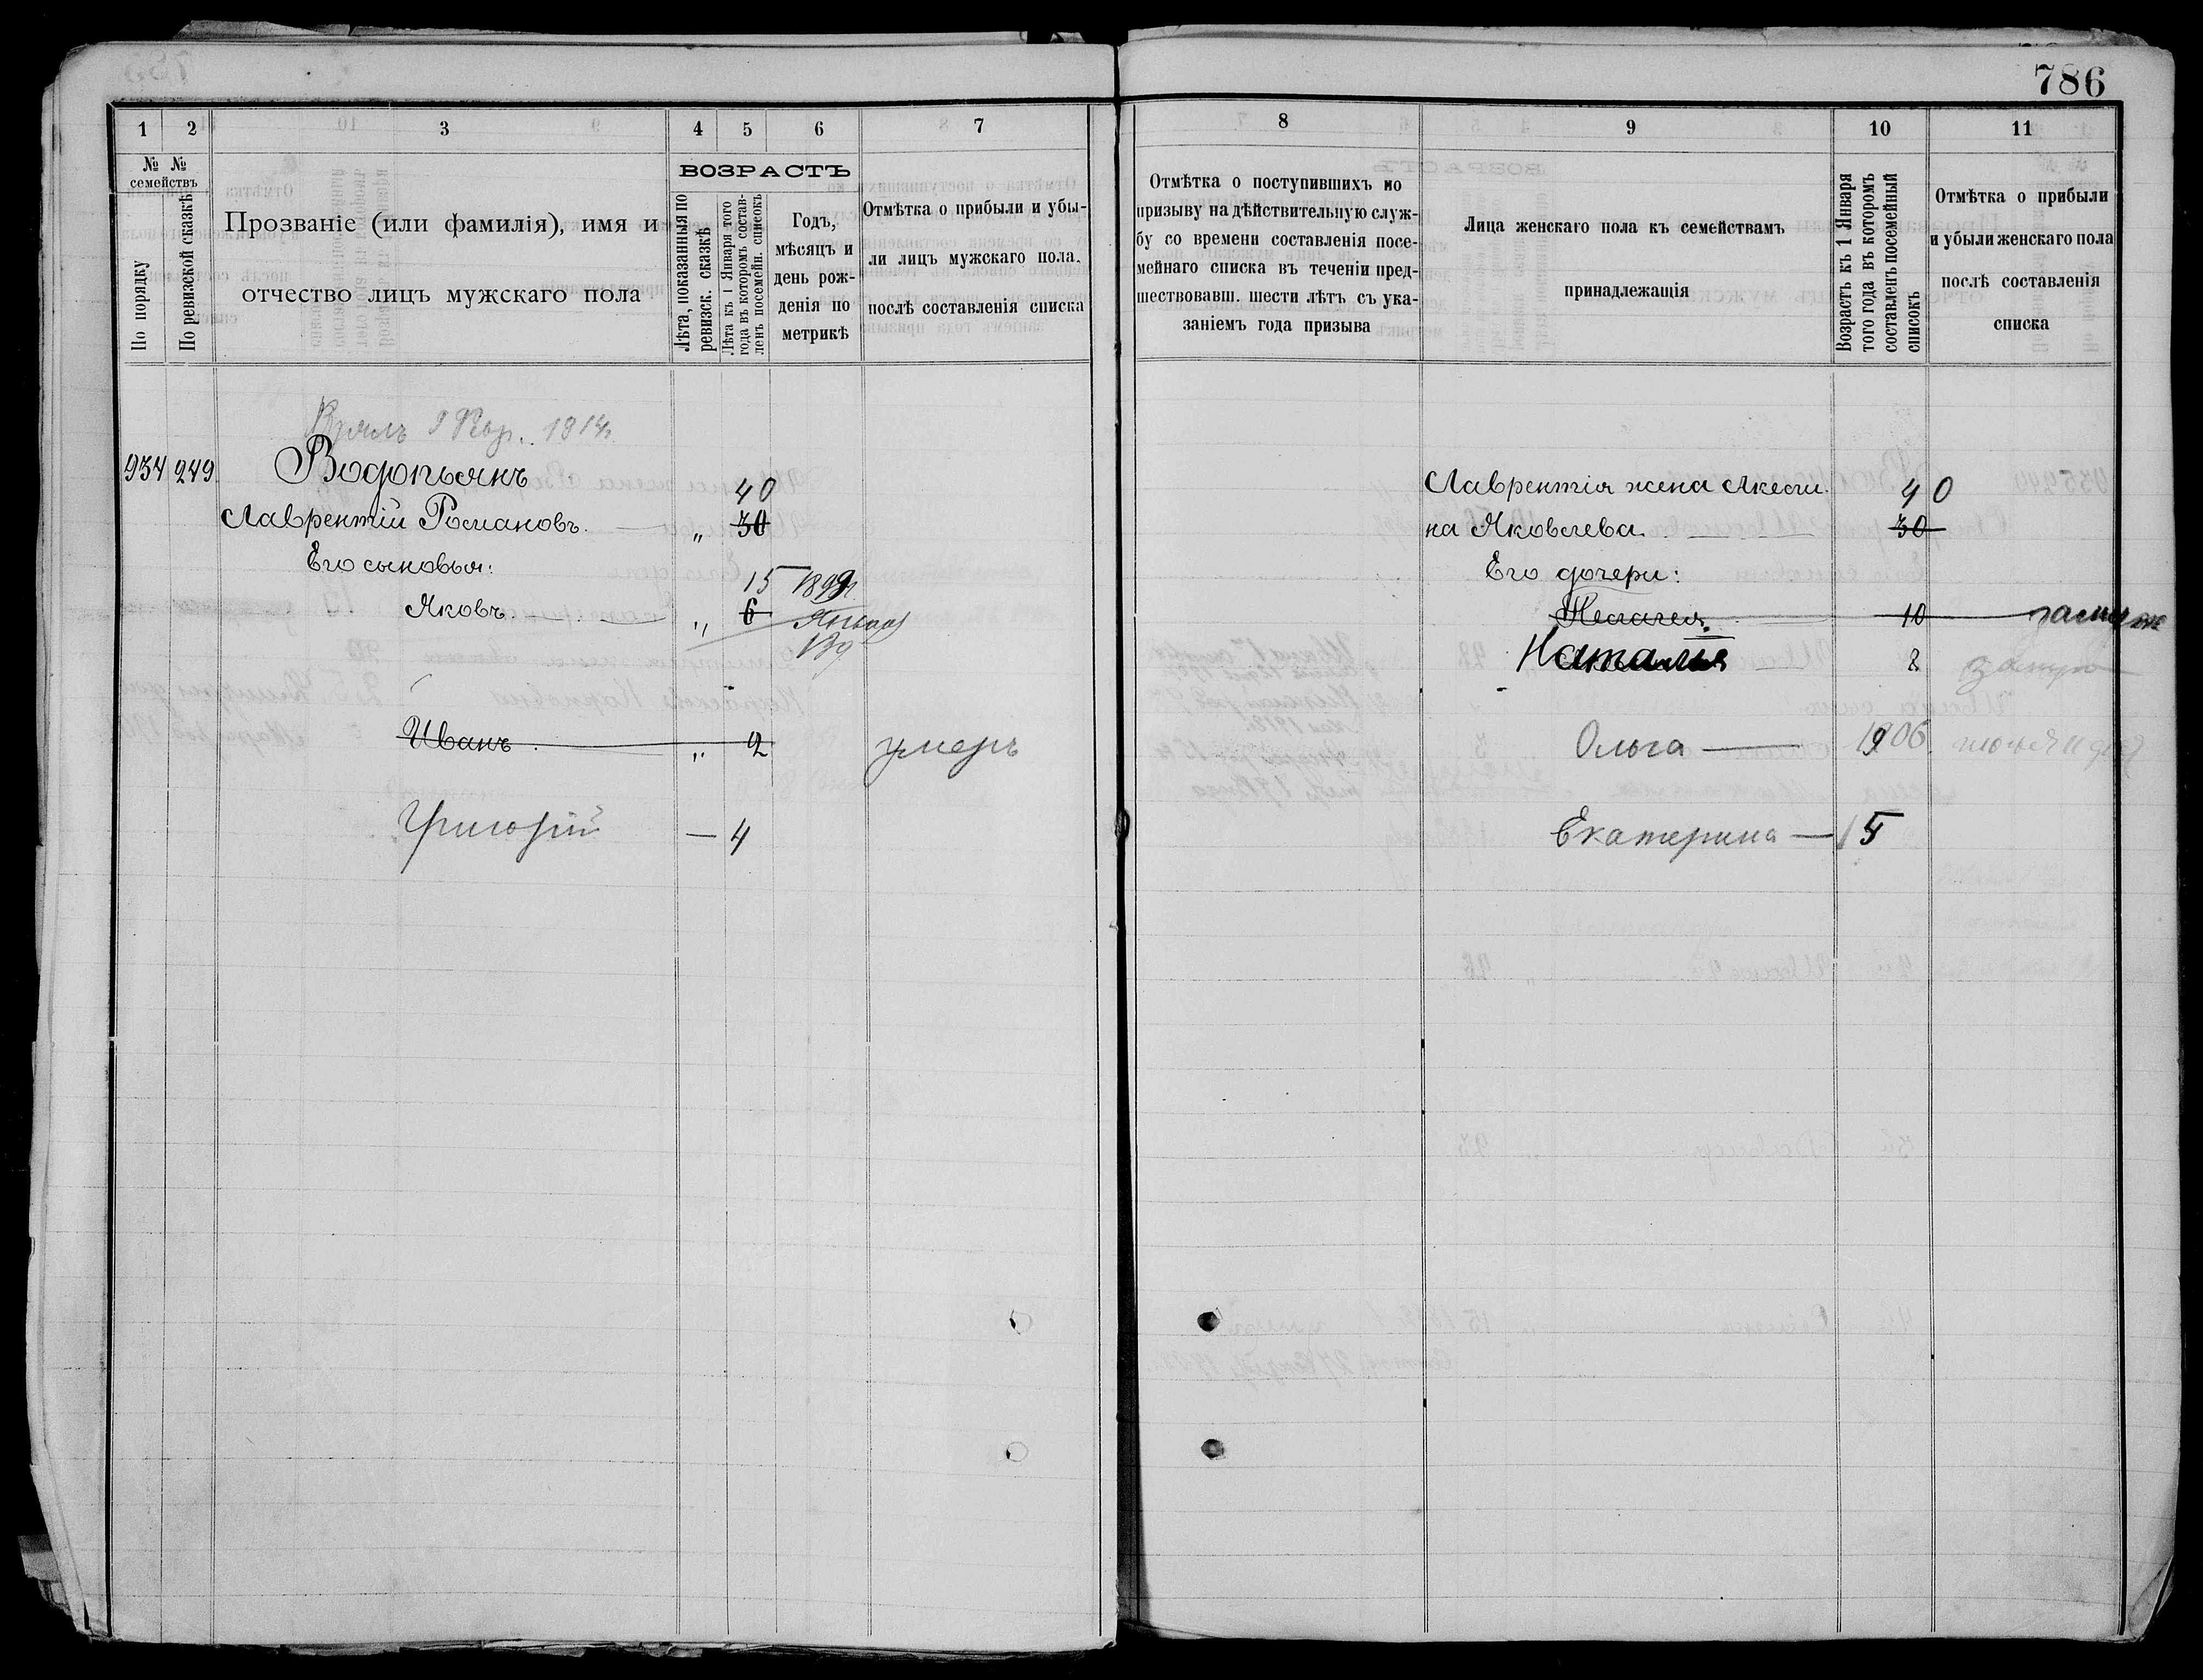 786
1 2 3 4 5 6 7
№ № семействъ
По порядку
По ревизской сказкѣ
Прозваніе (или фамилія), имя и
отчество лицъ мужскаго пола
ВОЗРАСТЪ
Лѣта, показанныя по
ревизск. сказкѣ
Лѣта къ 1 Января того
года въ которомъ состав-
ленъ посемейн. списокъ
Годъ,
мѣсяцъ и
день рож-
денія по
метрикѣ
Отмѣтка о прибыли и убы-
ли лицъ мужскаго пола,
послѣ составленія списка
9 1914
934 249 Водопьянъ
40
Лаврентій Романовъ. „ 30
Его сыновья:
15 1899
Яковъ. „ 6
Иванъ. „ 2 умеръ
Григорій — 4
8 9 10 11
Отмѣтка о поступившихъ по
призыву на дѣйствительную служ-
бу со времени составленія посе-
мейнаго списка въ теченіи пред-
шествовавш. шести лѣтъ съ ука-
заніемъ года призыва
Лица женскаго пола къ семействамъ
принадлежащія
Возрастъ къ 1 Января
того года въ которомъ
составленъ посемейный
списокъ
Отмѣтка о прибыли
и убыли женскаго пола
послѣ составленія
списка
Лаврентія жена Акели- 40
на Яковлева. 30
Его дочери:
10 замуж
Наталья 8 замуж
Ольга — 1906
Екатерина — 15